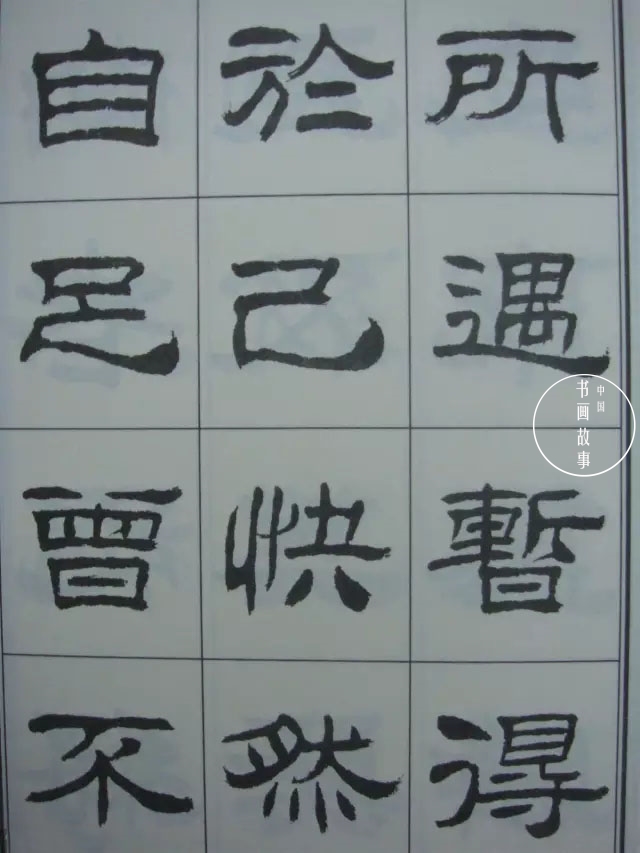 所遇暫得
於己快然
自足曾不
中国
书画故事